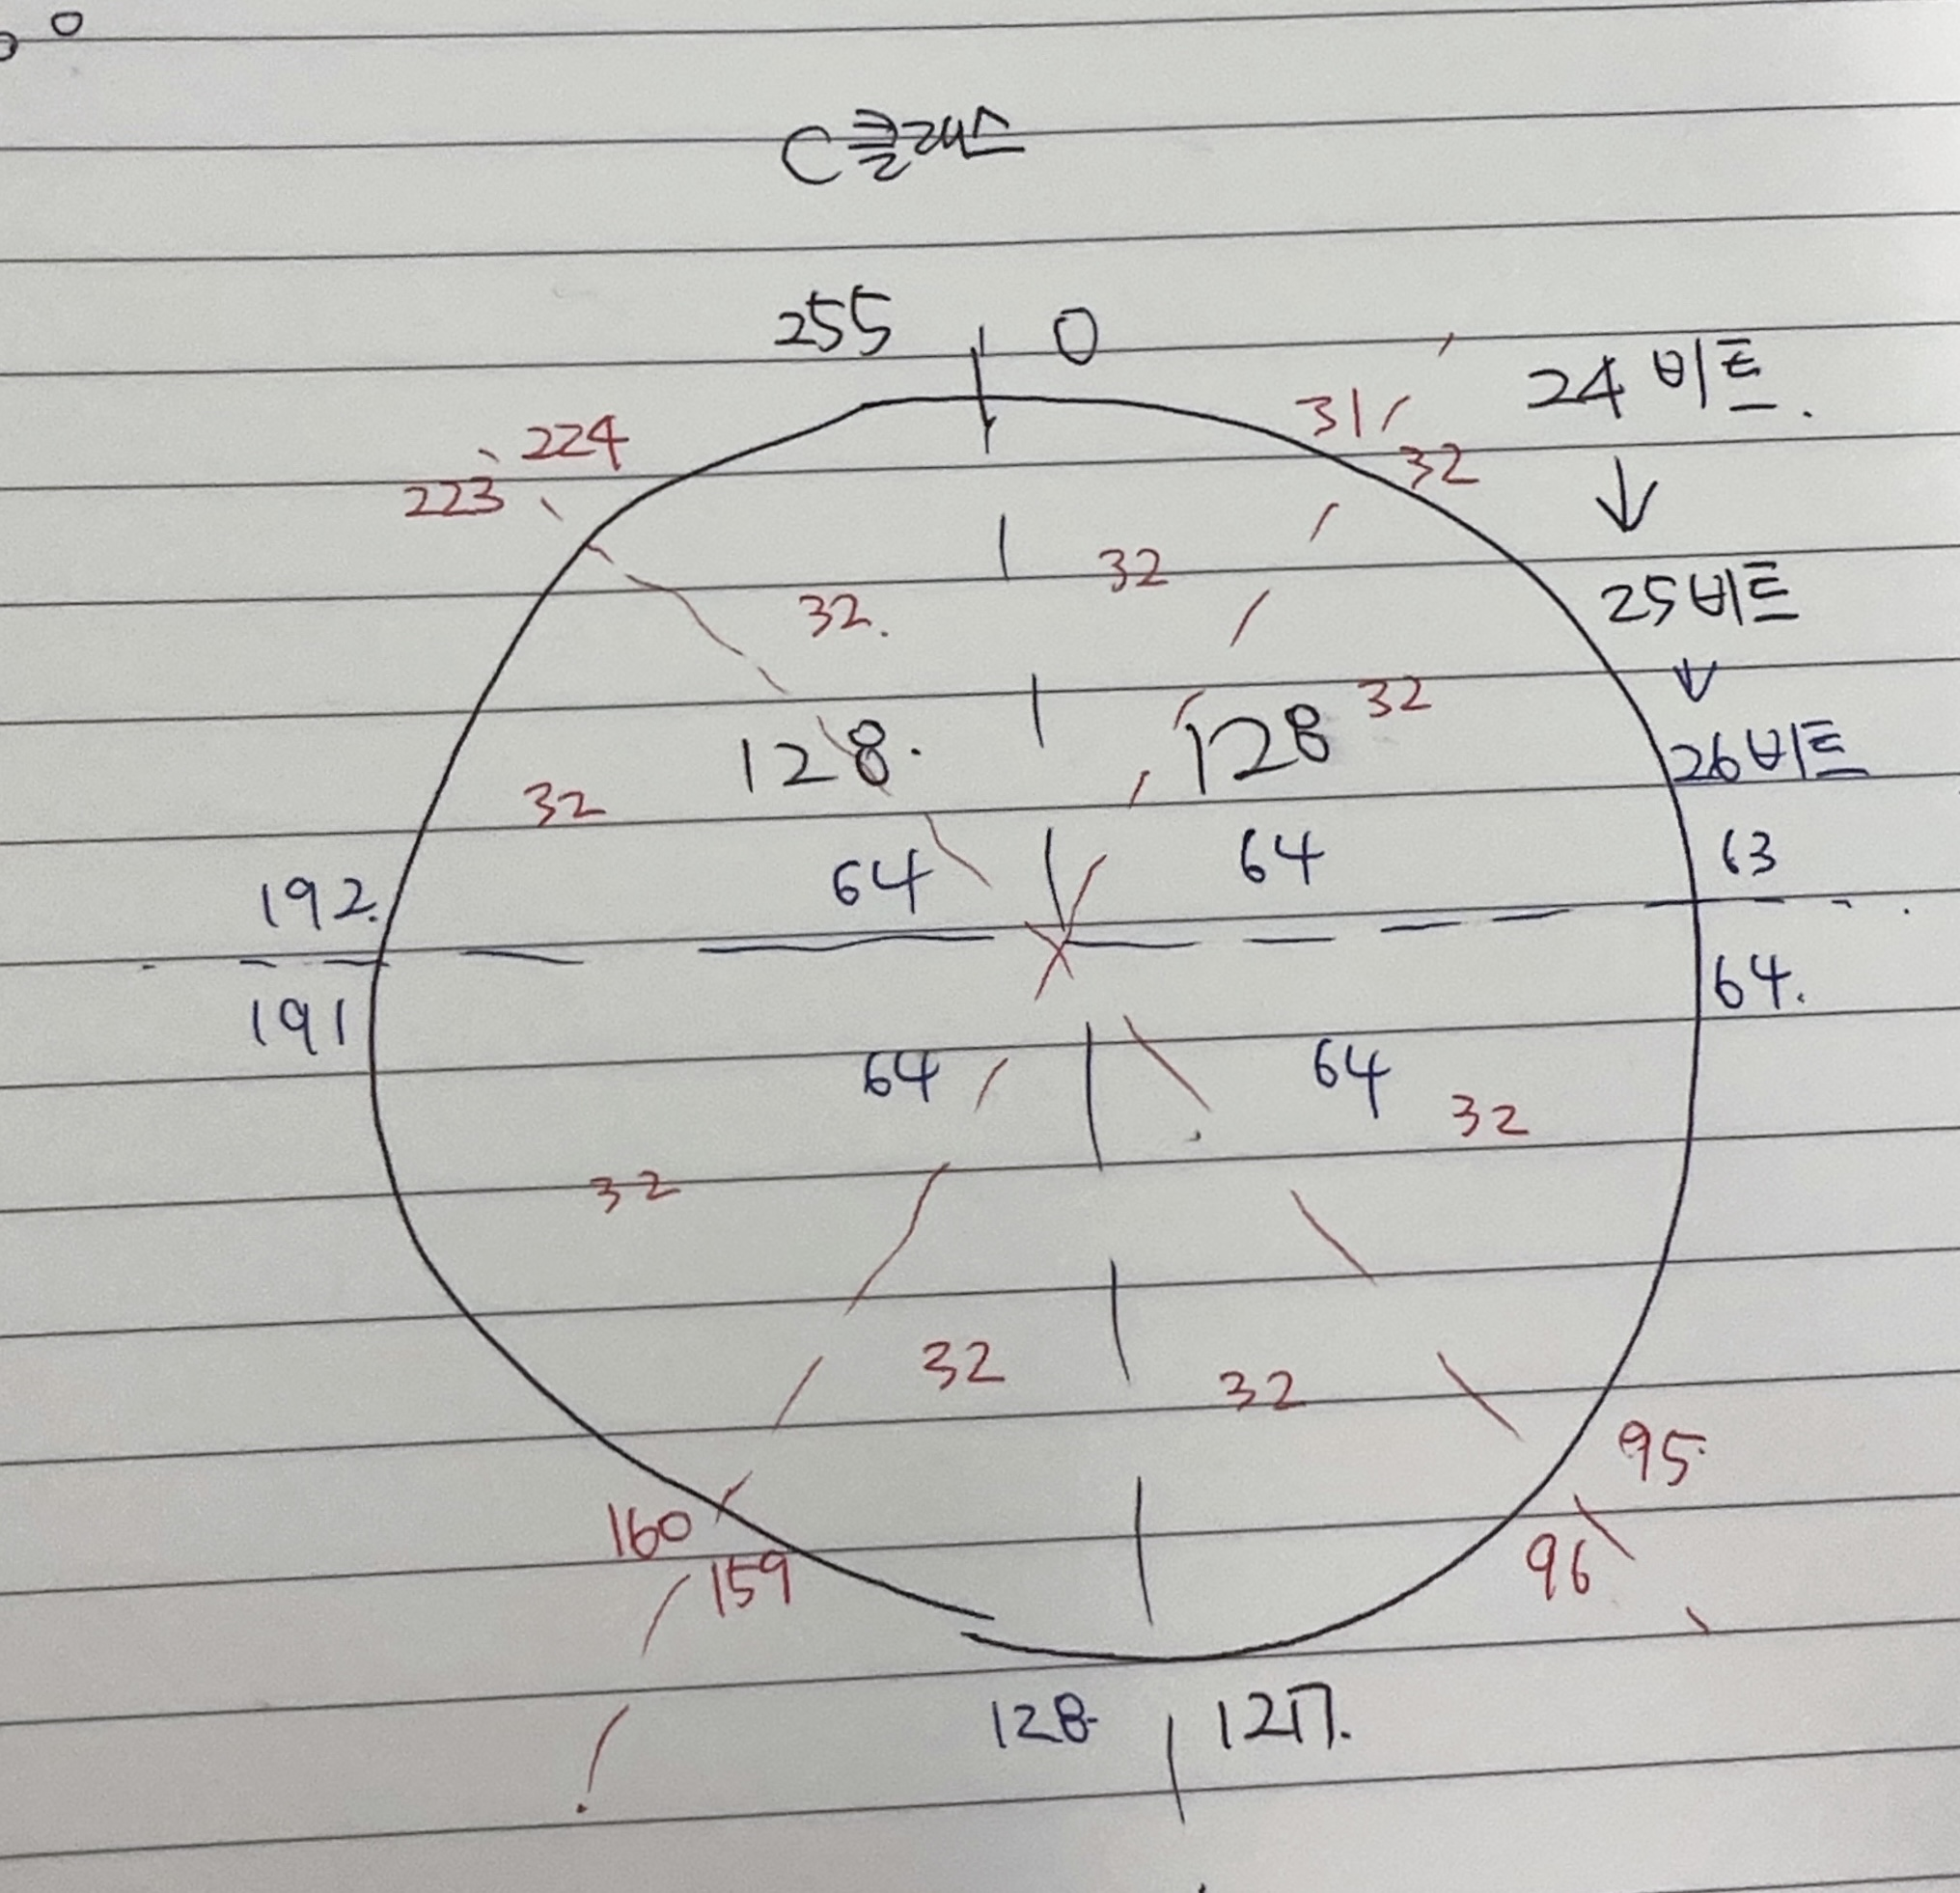 C클래스
255 0
24 비트.
31
32
224
223
25비트
32
32.
26비트
32
128. 128
32
64 64
63
192.
191
64.
64 64
32
32
32 32
95
96
160
159
128 127.